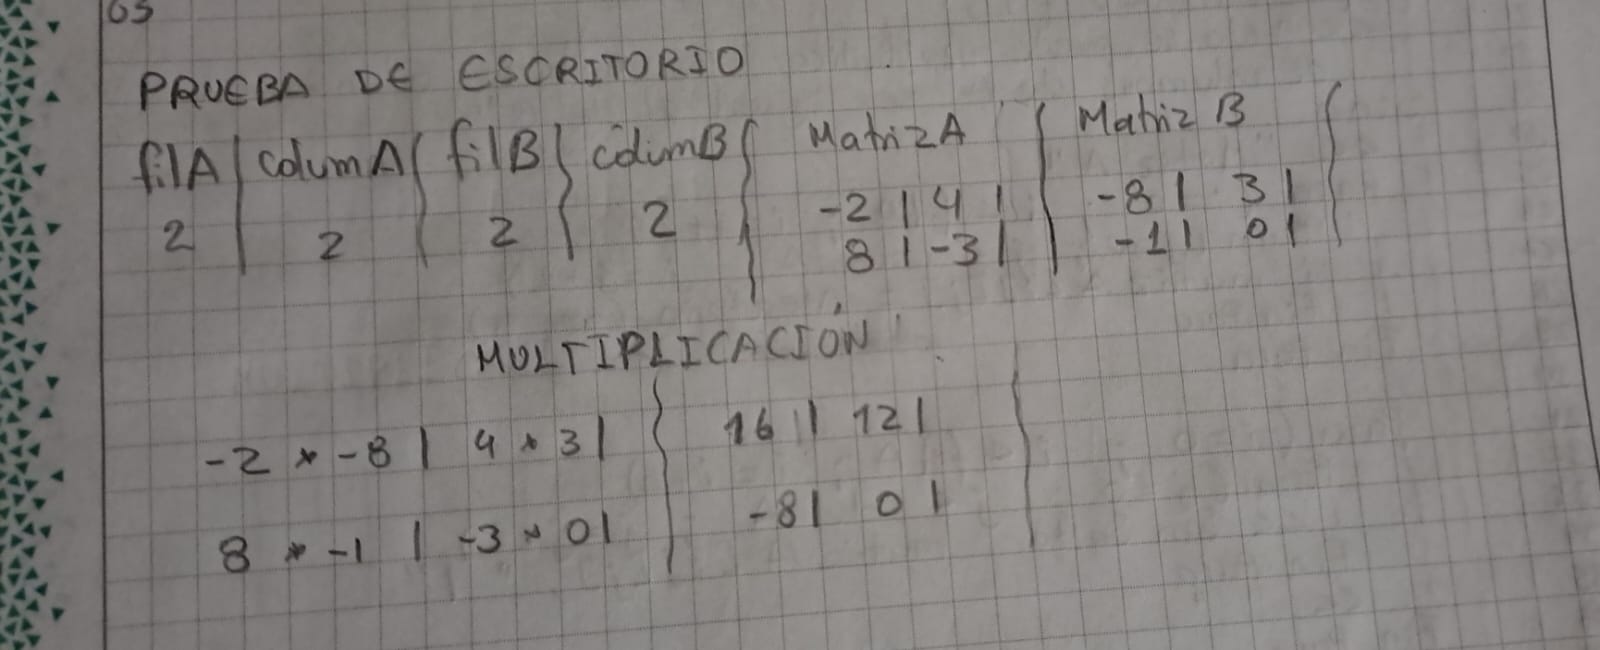 PRUEBA DE ESCRITORIO
filA | columA | filB | columB | MatrizA | Matriz B
2 | 2 | 2 | 2 | -2 | 4 | | -8 | 3 |
8 | -3 | | -1 | 0 |
MULTIPLICACIÓN
-2 * -8 | 4 * 3 | 16 | 12 |
8 * -1 | -3 * 0 | -8 | 0 |